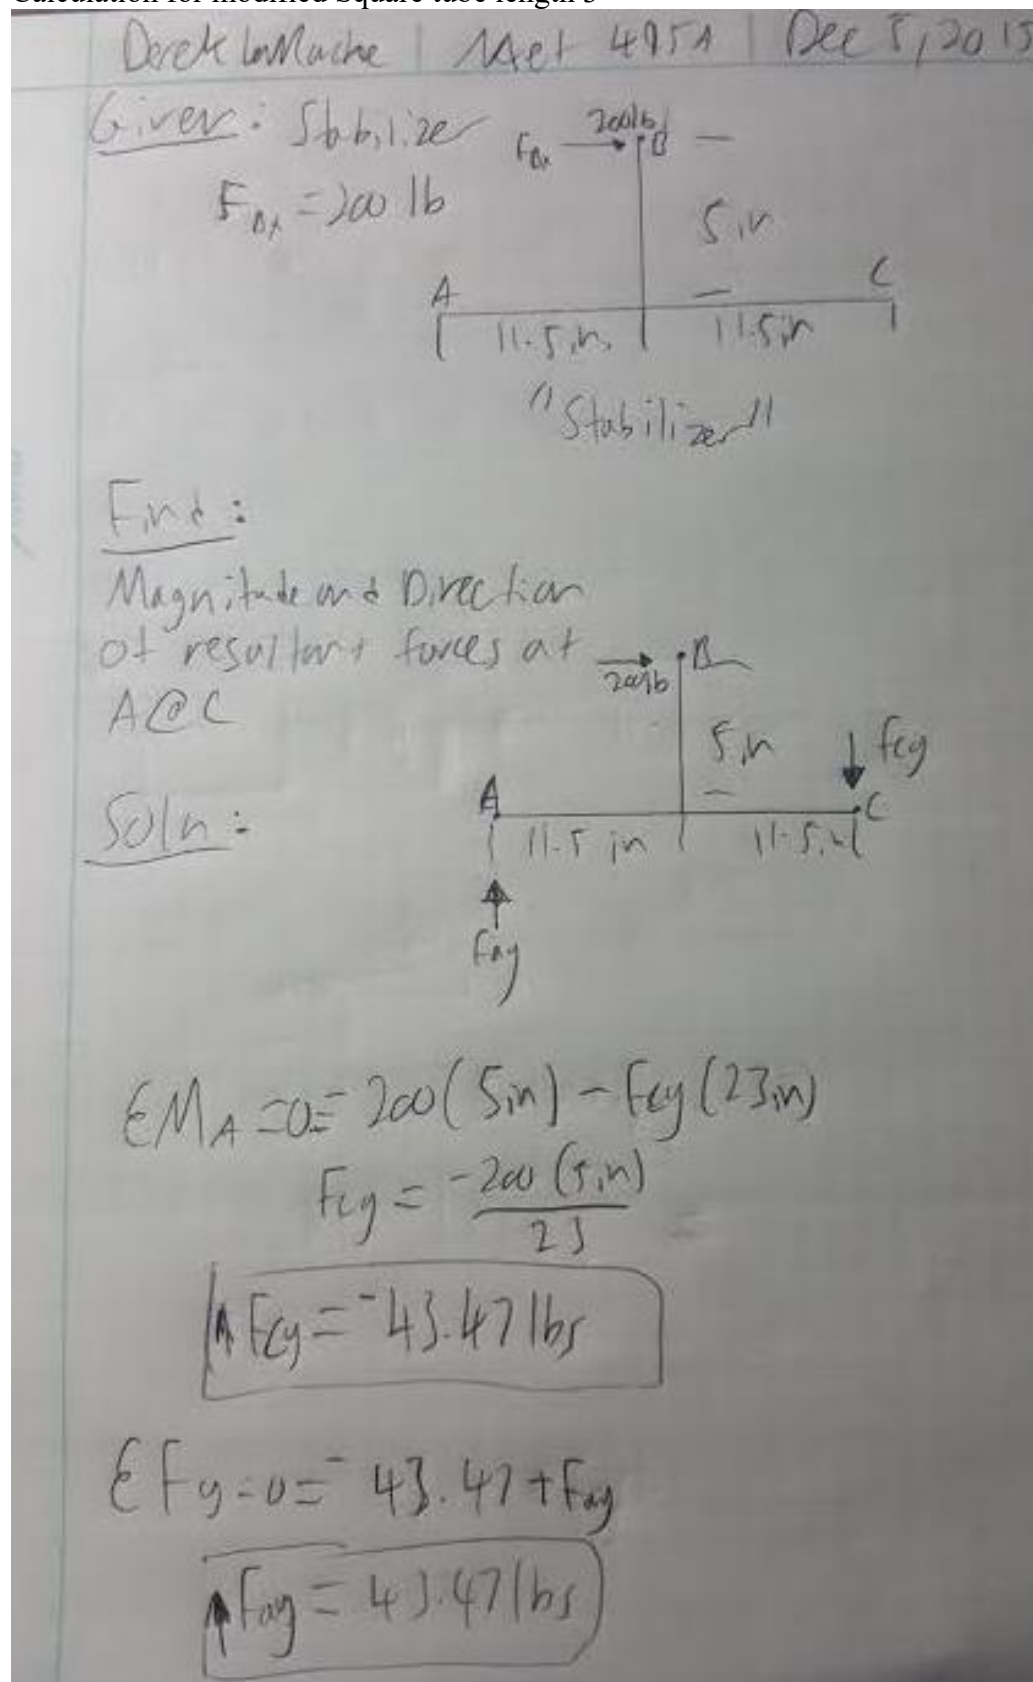 Calculation for modified Square tube length 5
Derek LaMache | Met 495A | Dec 5, 2013
Given: Stabilizer
F_Bx = 200 lb
F_Bx 200lb B
5 in
A C
11.5 in. 11.5in
"Stabilizer"
Find:
Magnitude and Direction
of resultant forces at
A @ C
200lb B
5 in Fcy
Soln:
A C
11.5 in 11.5in
Fay
ΣM_A =0= 200(5in) - Fcy(23in)
Fcy = -200(5in)
23
↑Fcy = -43.47 lbs
ΣFy=0= -43.47 + Fay
↑Fay = 43.47 lbs